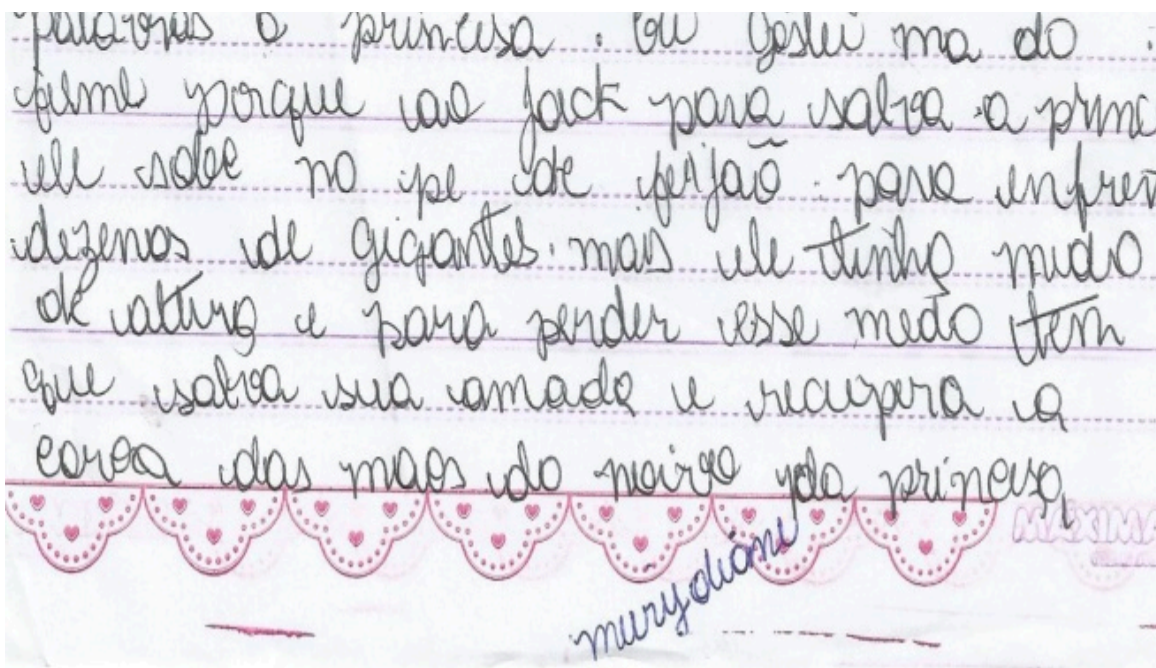 palavras a princesa. Eu gostei ma do
filme porque o Jack para salva a princ
ele sobe no pe de feijão para enfren
dezenas de gigantes mais ele tinha medo
de altura e para perder esse medo tem
que salva sua amada e recupera a
coroa das maos do noivo da princesa,
MÁXIMA
murydiane